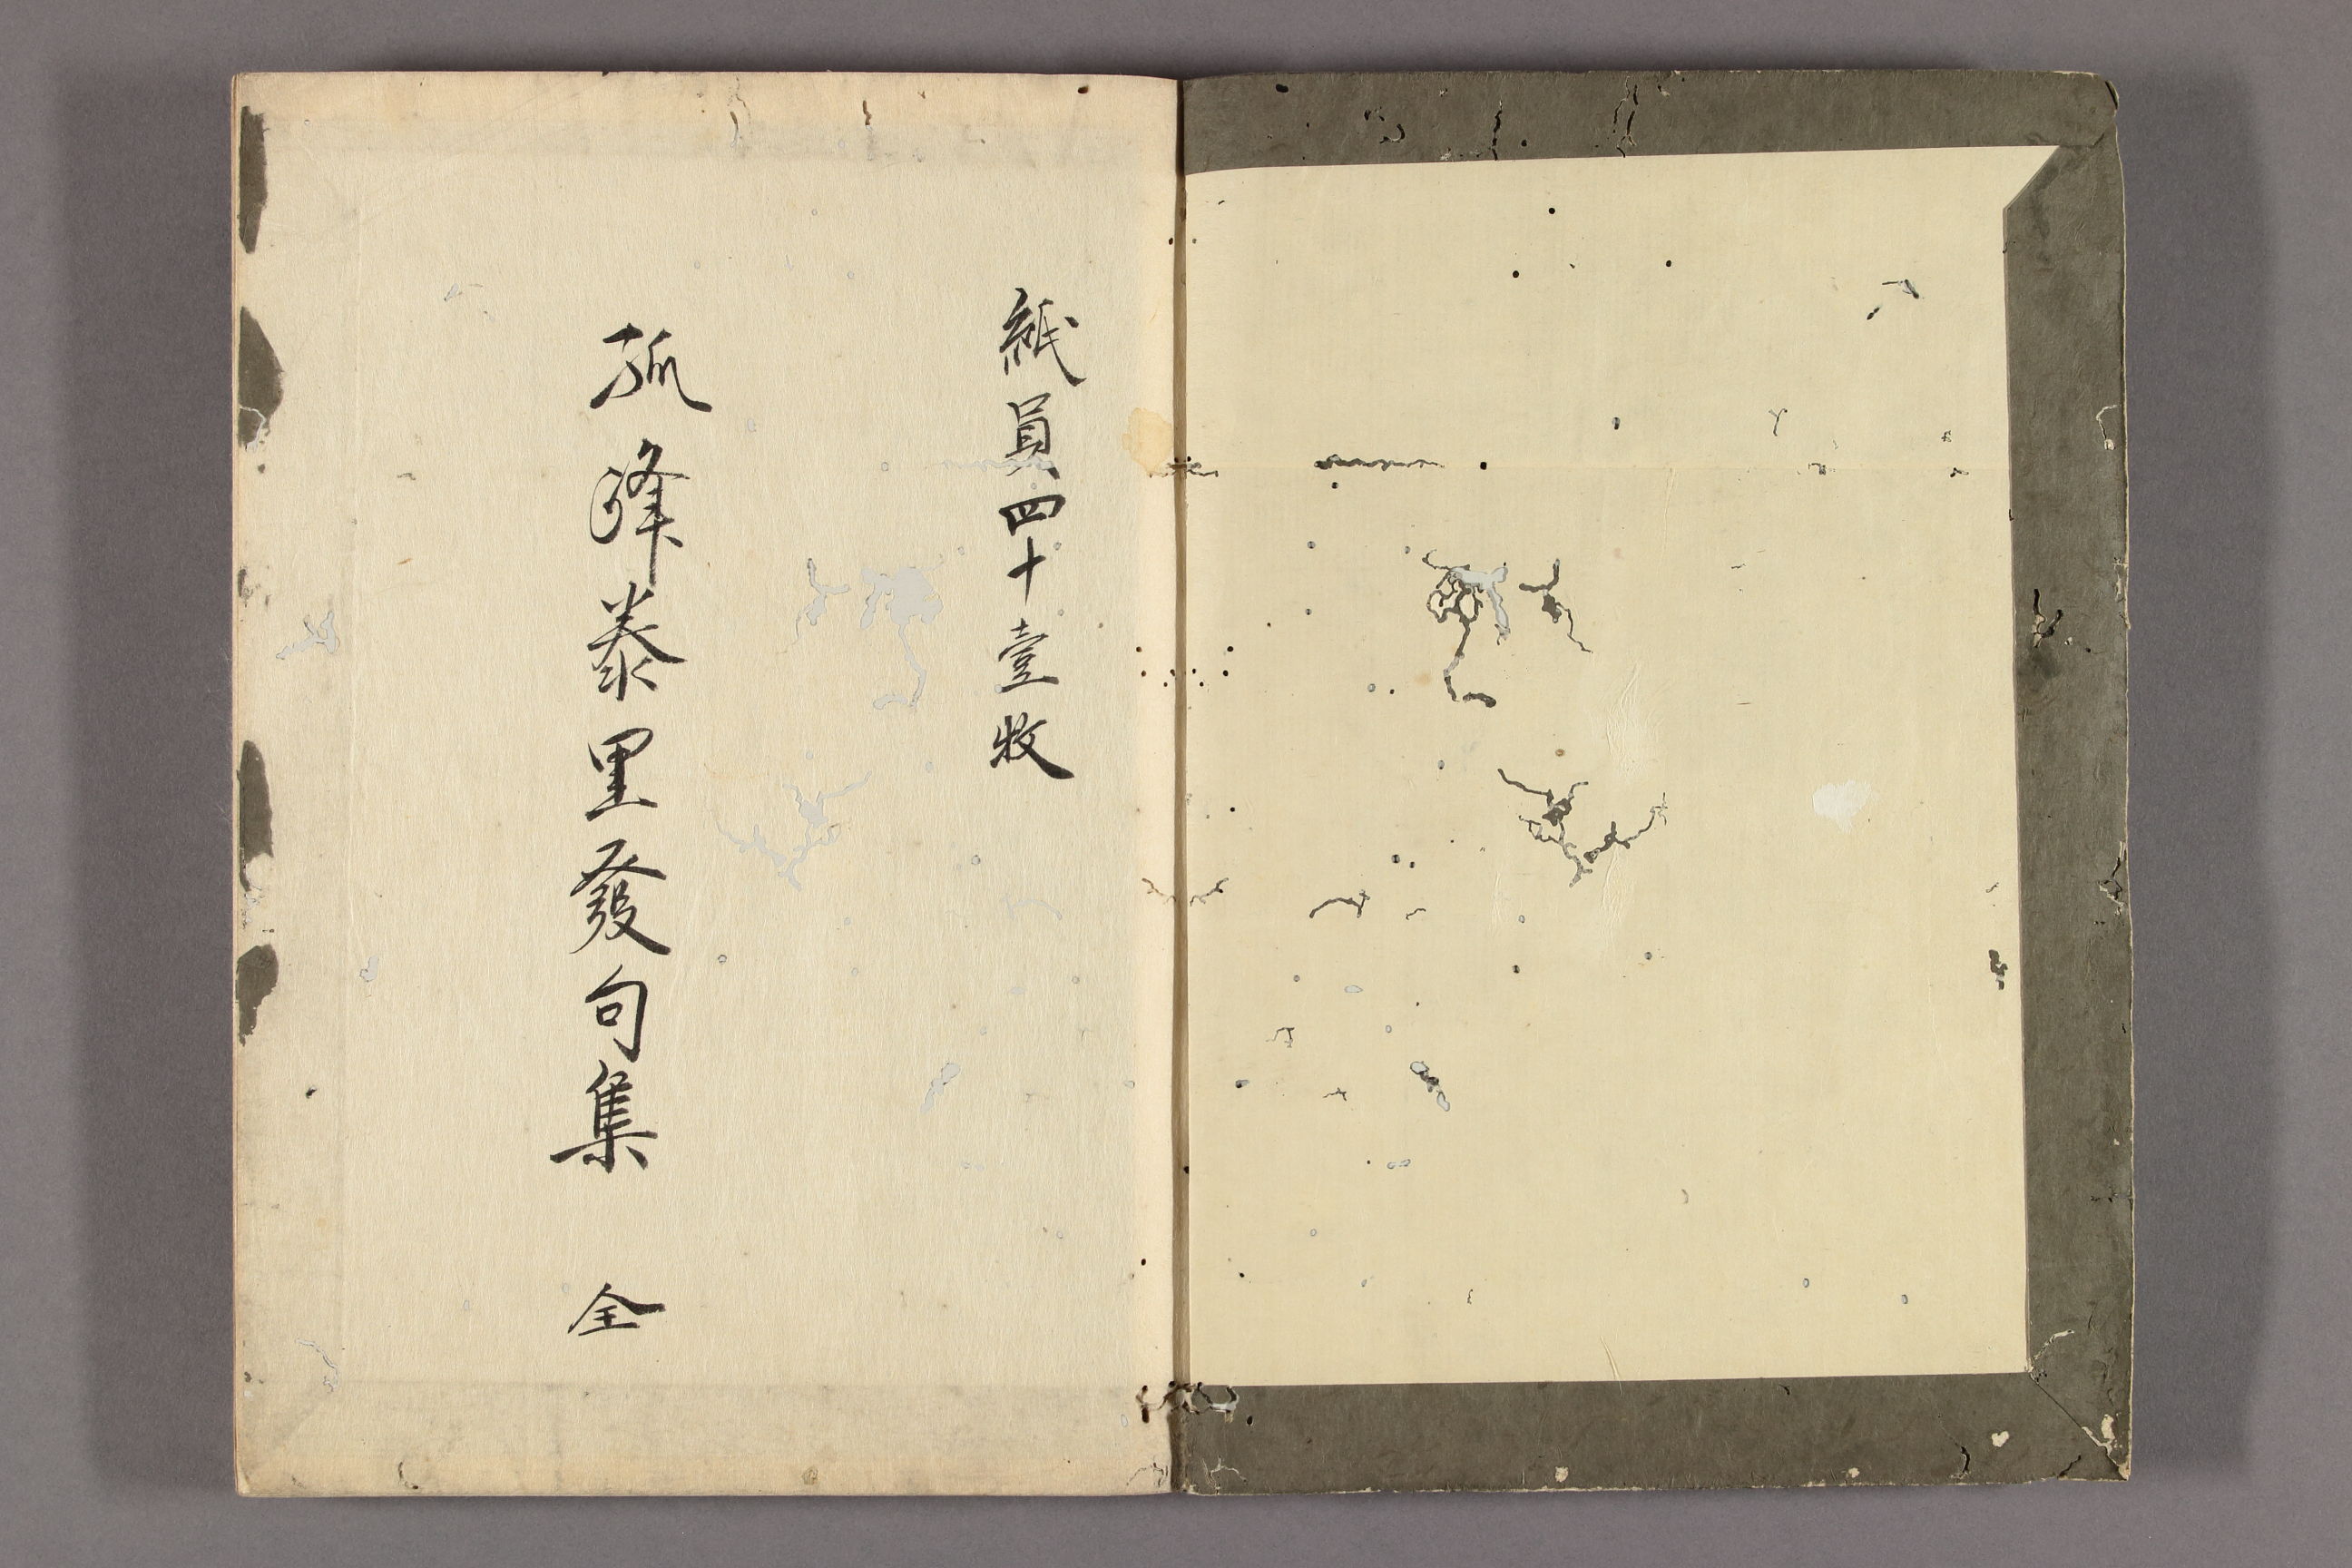 紙員四十壹枚
孤峰泰里發句集　全